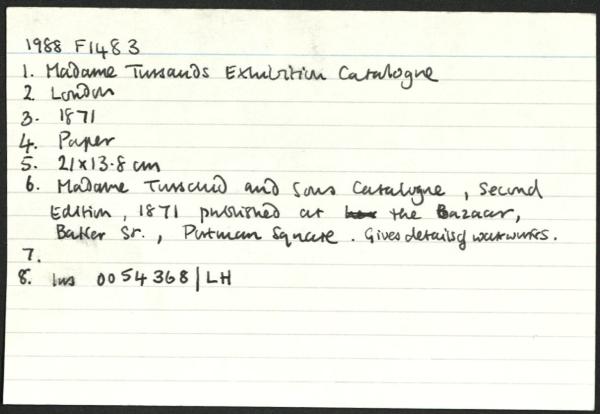 1988 F1483
1. Madame Tussauds Exhibition Catalogue
2. London
3. 1871
4. Paper
5. 21x13.8 cm
6. Madame Tussaud and Sons Catalogue, Second
Edition, 1871 published at the Bazaar,
Baker St., Portman Square. Gives details of waxworks.
7.
8. Ins 0054368/LH